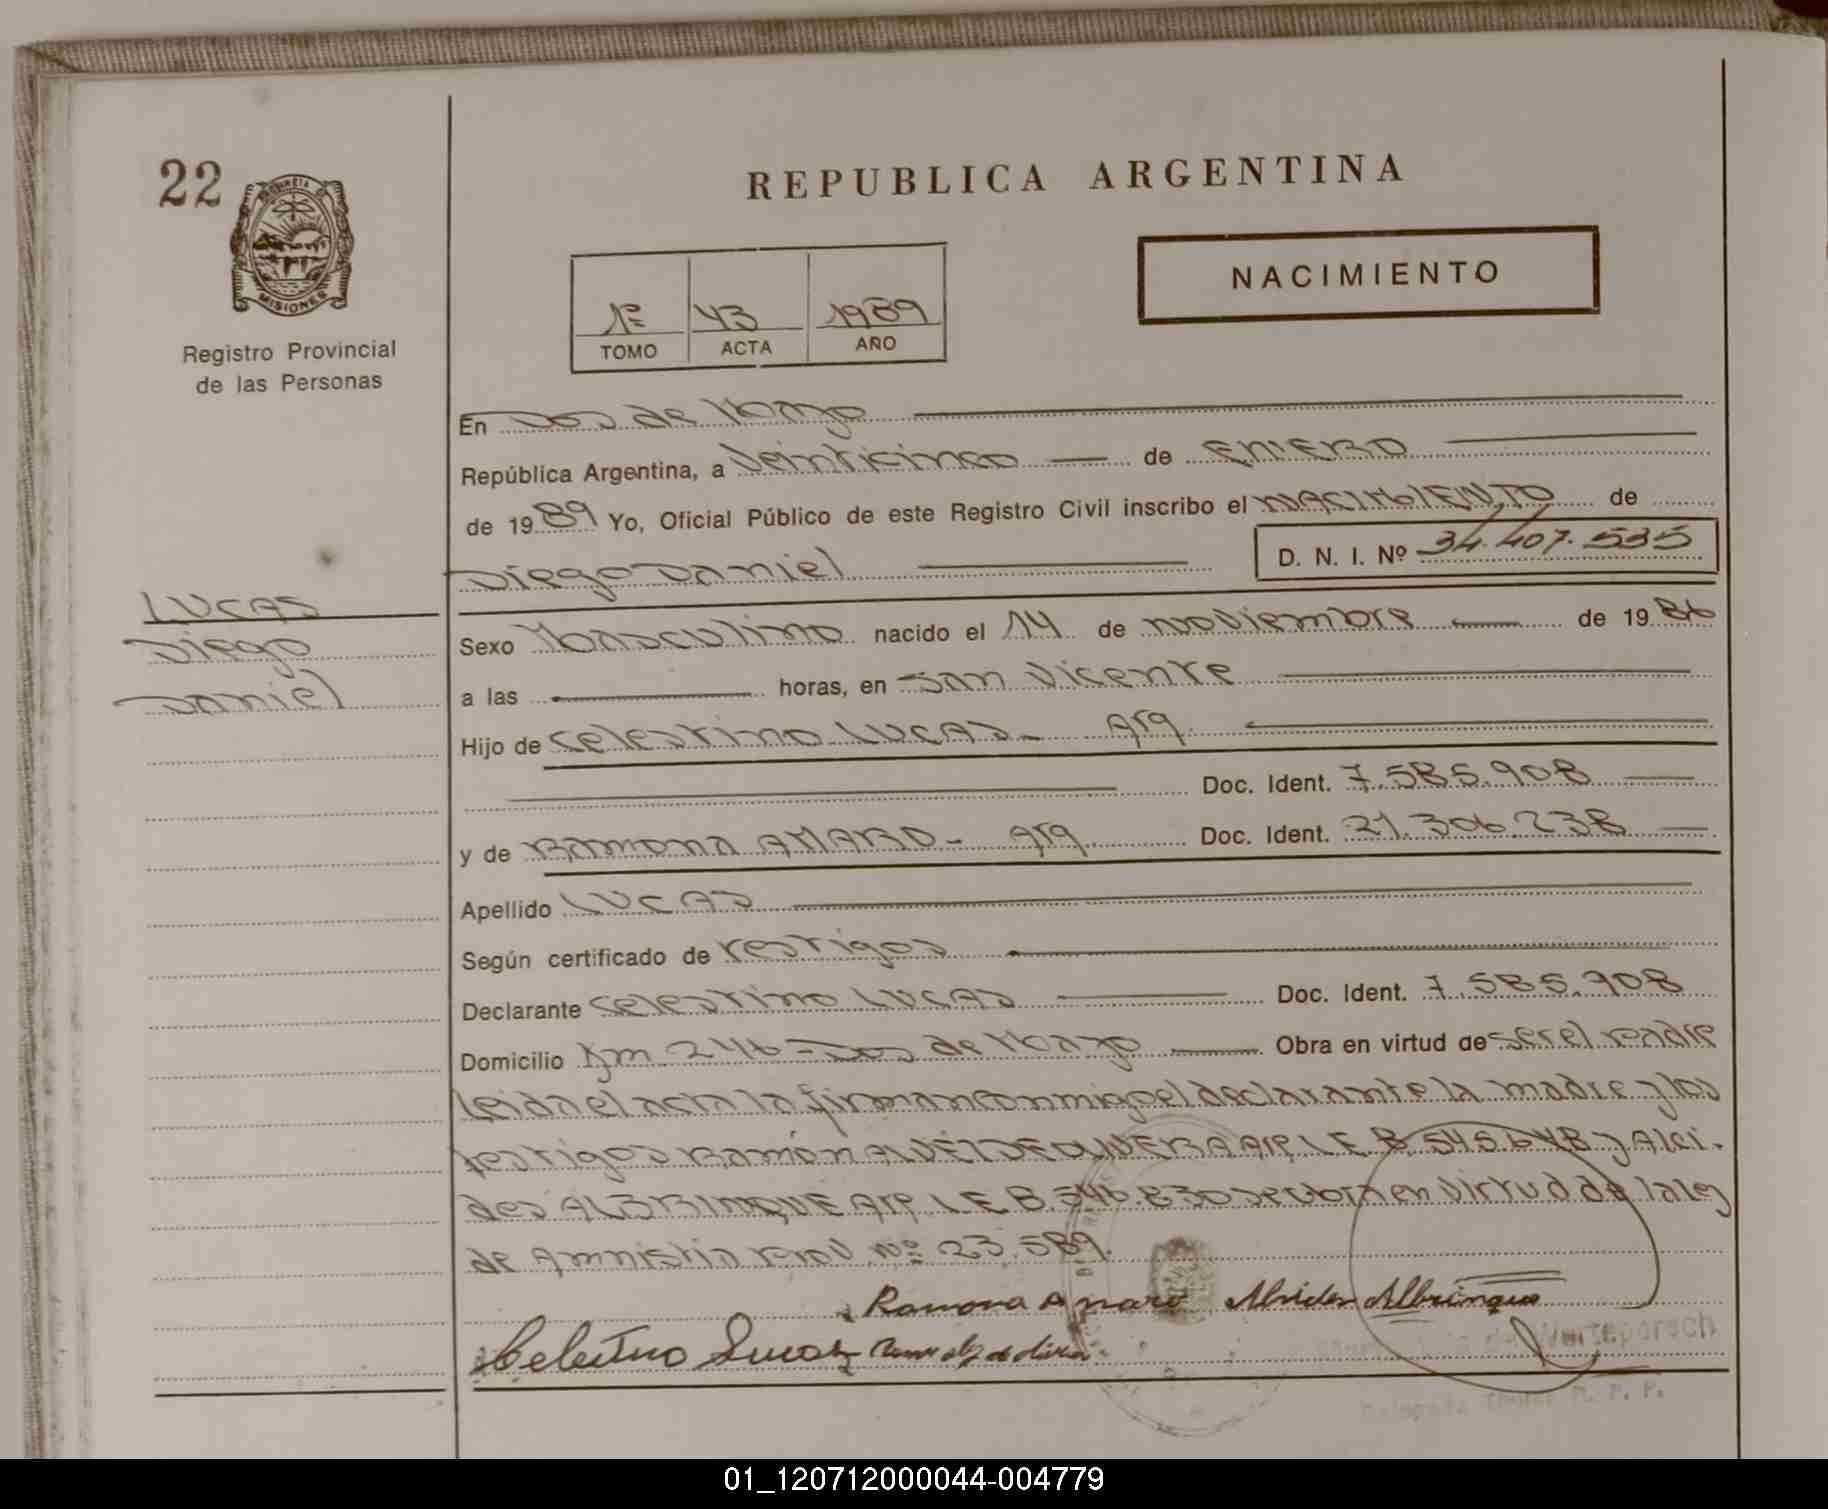 22
PROVINCIA DE
MISIONES
Registro Provincial
de las Personas
REPUBLICA ARGENTINA
NACIMIENTO
1º 43 1989
TOMO ACTA AÑO
En Dos de Mayo
República Argentina, a Veinticinco de ENERO
de 1989 Yo, Oficial Público de este Registro Civil inscribo el NACIMIENTO de
Diego Daniel D. N. I. Nº 34.407.535
LUCAS
Diego
Daniel
Sexo Masculino nacido el 14 de noviembre de 1986
a las horas, en San Vicente
Hijo de Celestino LUCAS - Arg.
Doc. Ident. 7.585.908
y de Ramona AMARO - Arg. Doc. Ident. 21.306.238
Apellido LUCAS
Según certificado de testigos
Declarante Celestino LUCAS Doc. Ident. 7.585.908
Domicilio Km 246 - Dos de Mayo Obra en virtud de ser el padre
Leida el acta la firman conmigo el declarante la madre y los
testigos Ramón ALVEZ DE OLIVERA Arg. L.E. 8.545.648 y Alci-
des ALBRINQUE Arg. L.E. 8.546.830 se labra en virtud de la ley
de Amnistia Prov. Nº 23.589.
Ramona Amaro Alcides Albrinque
Celestino Lucas
Werteporoch
Delegada Titular R. P. P.
01_120712000044-004779